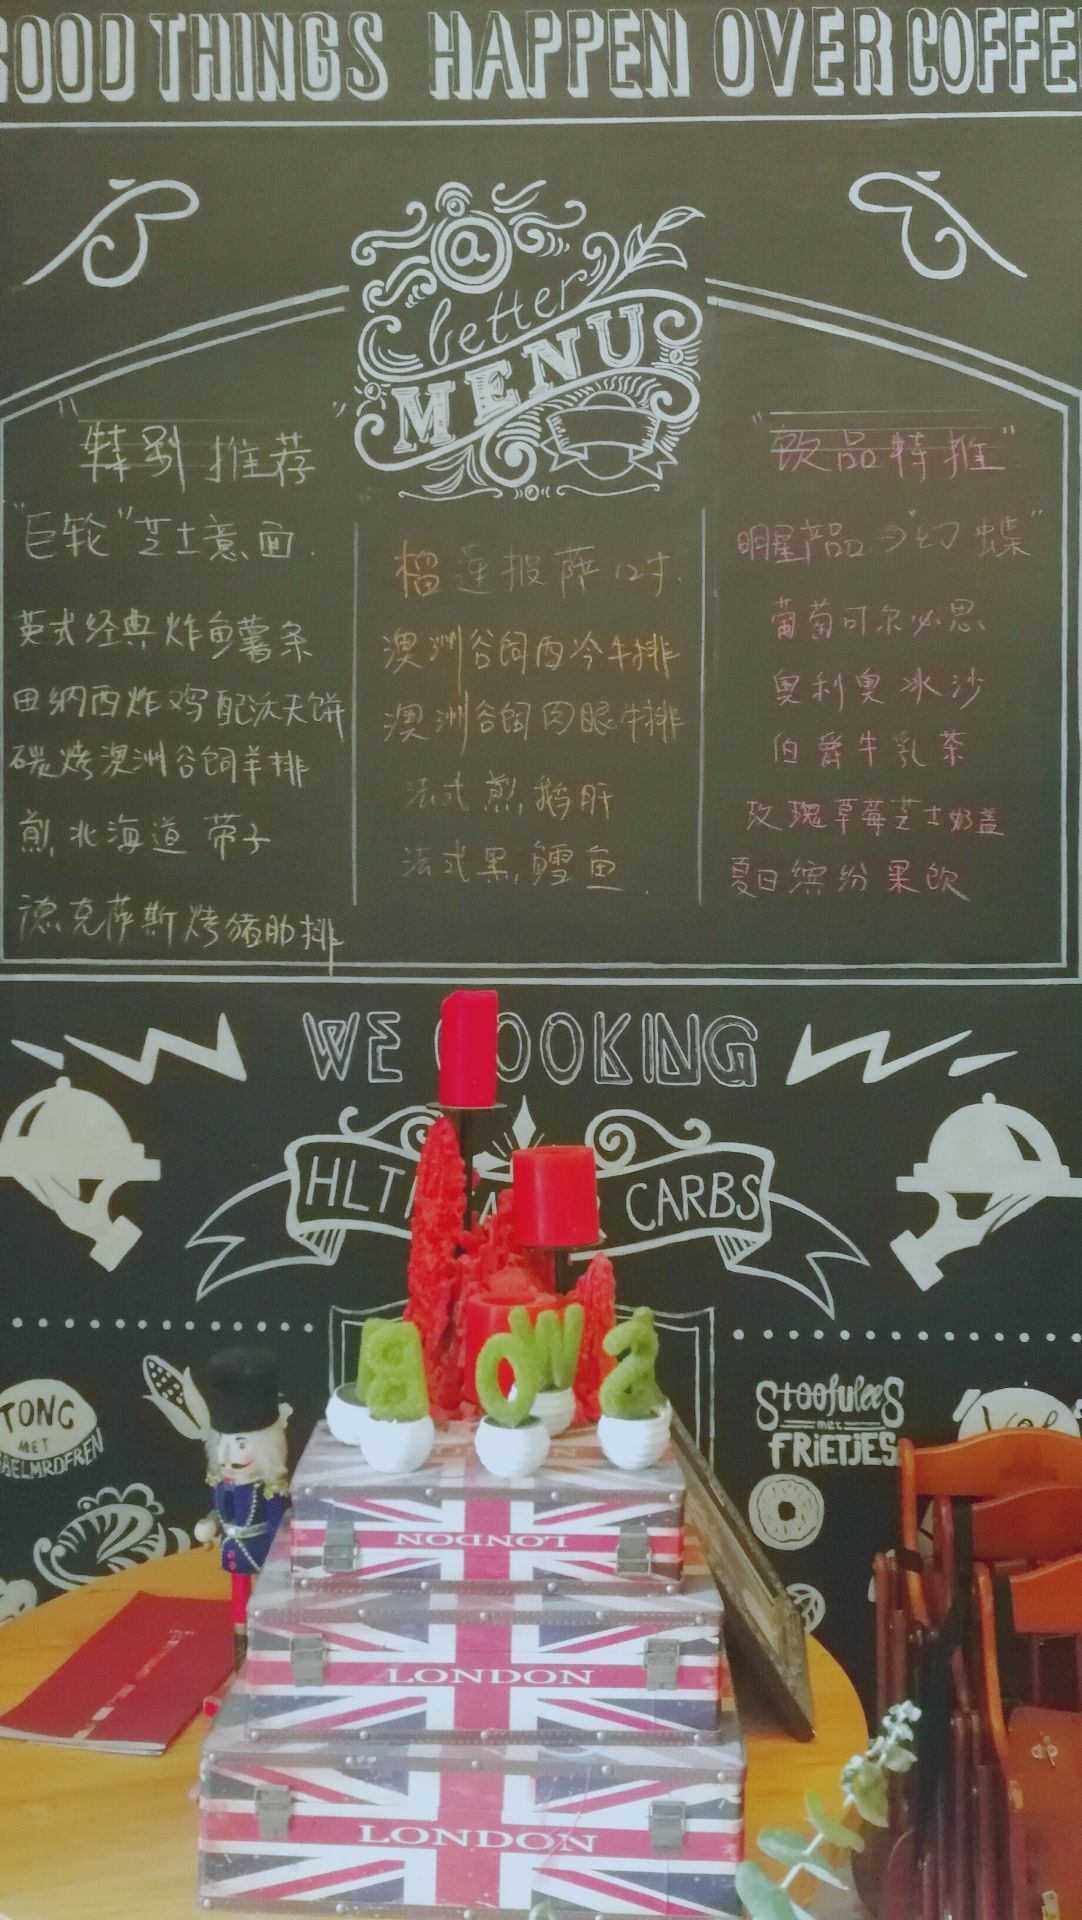 GOOD THINGS HAPPEN OVER COFFEE
@
better
MENU
"特别推荐"
"巨轮"芝士意面
英式经典炸鱼薯条
田纳西炸鸡配沃夫饼
碳烤澳洲谷饲羊排
煎北海道带子
德克萨斯烤猪肋排
榴莲披萨12寸
澳洲谷饲西冷牛排
澳洲谷饲肉眼牛排
法式煎鹅肝
法式黑鳕鱼
"饮品特推"
明星产品→"幻蝶"
葡萄可尔必思
奥利奥冰沙
伯爵牛乳茶
玫瑰草莓芝士奶盖
夏日缤纷果饮
WE COOKING
CARBS
TONG
MET
Stoofvlees
met
FRIETJES
LONDON
LONDON
LONDON